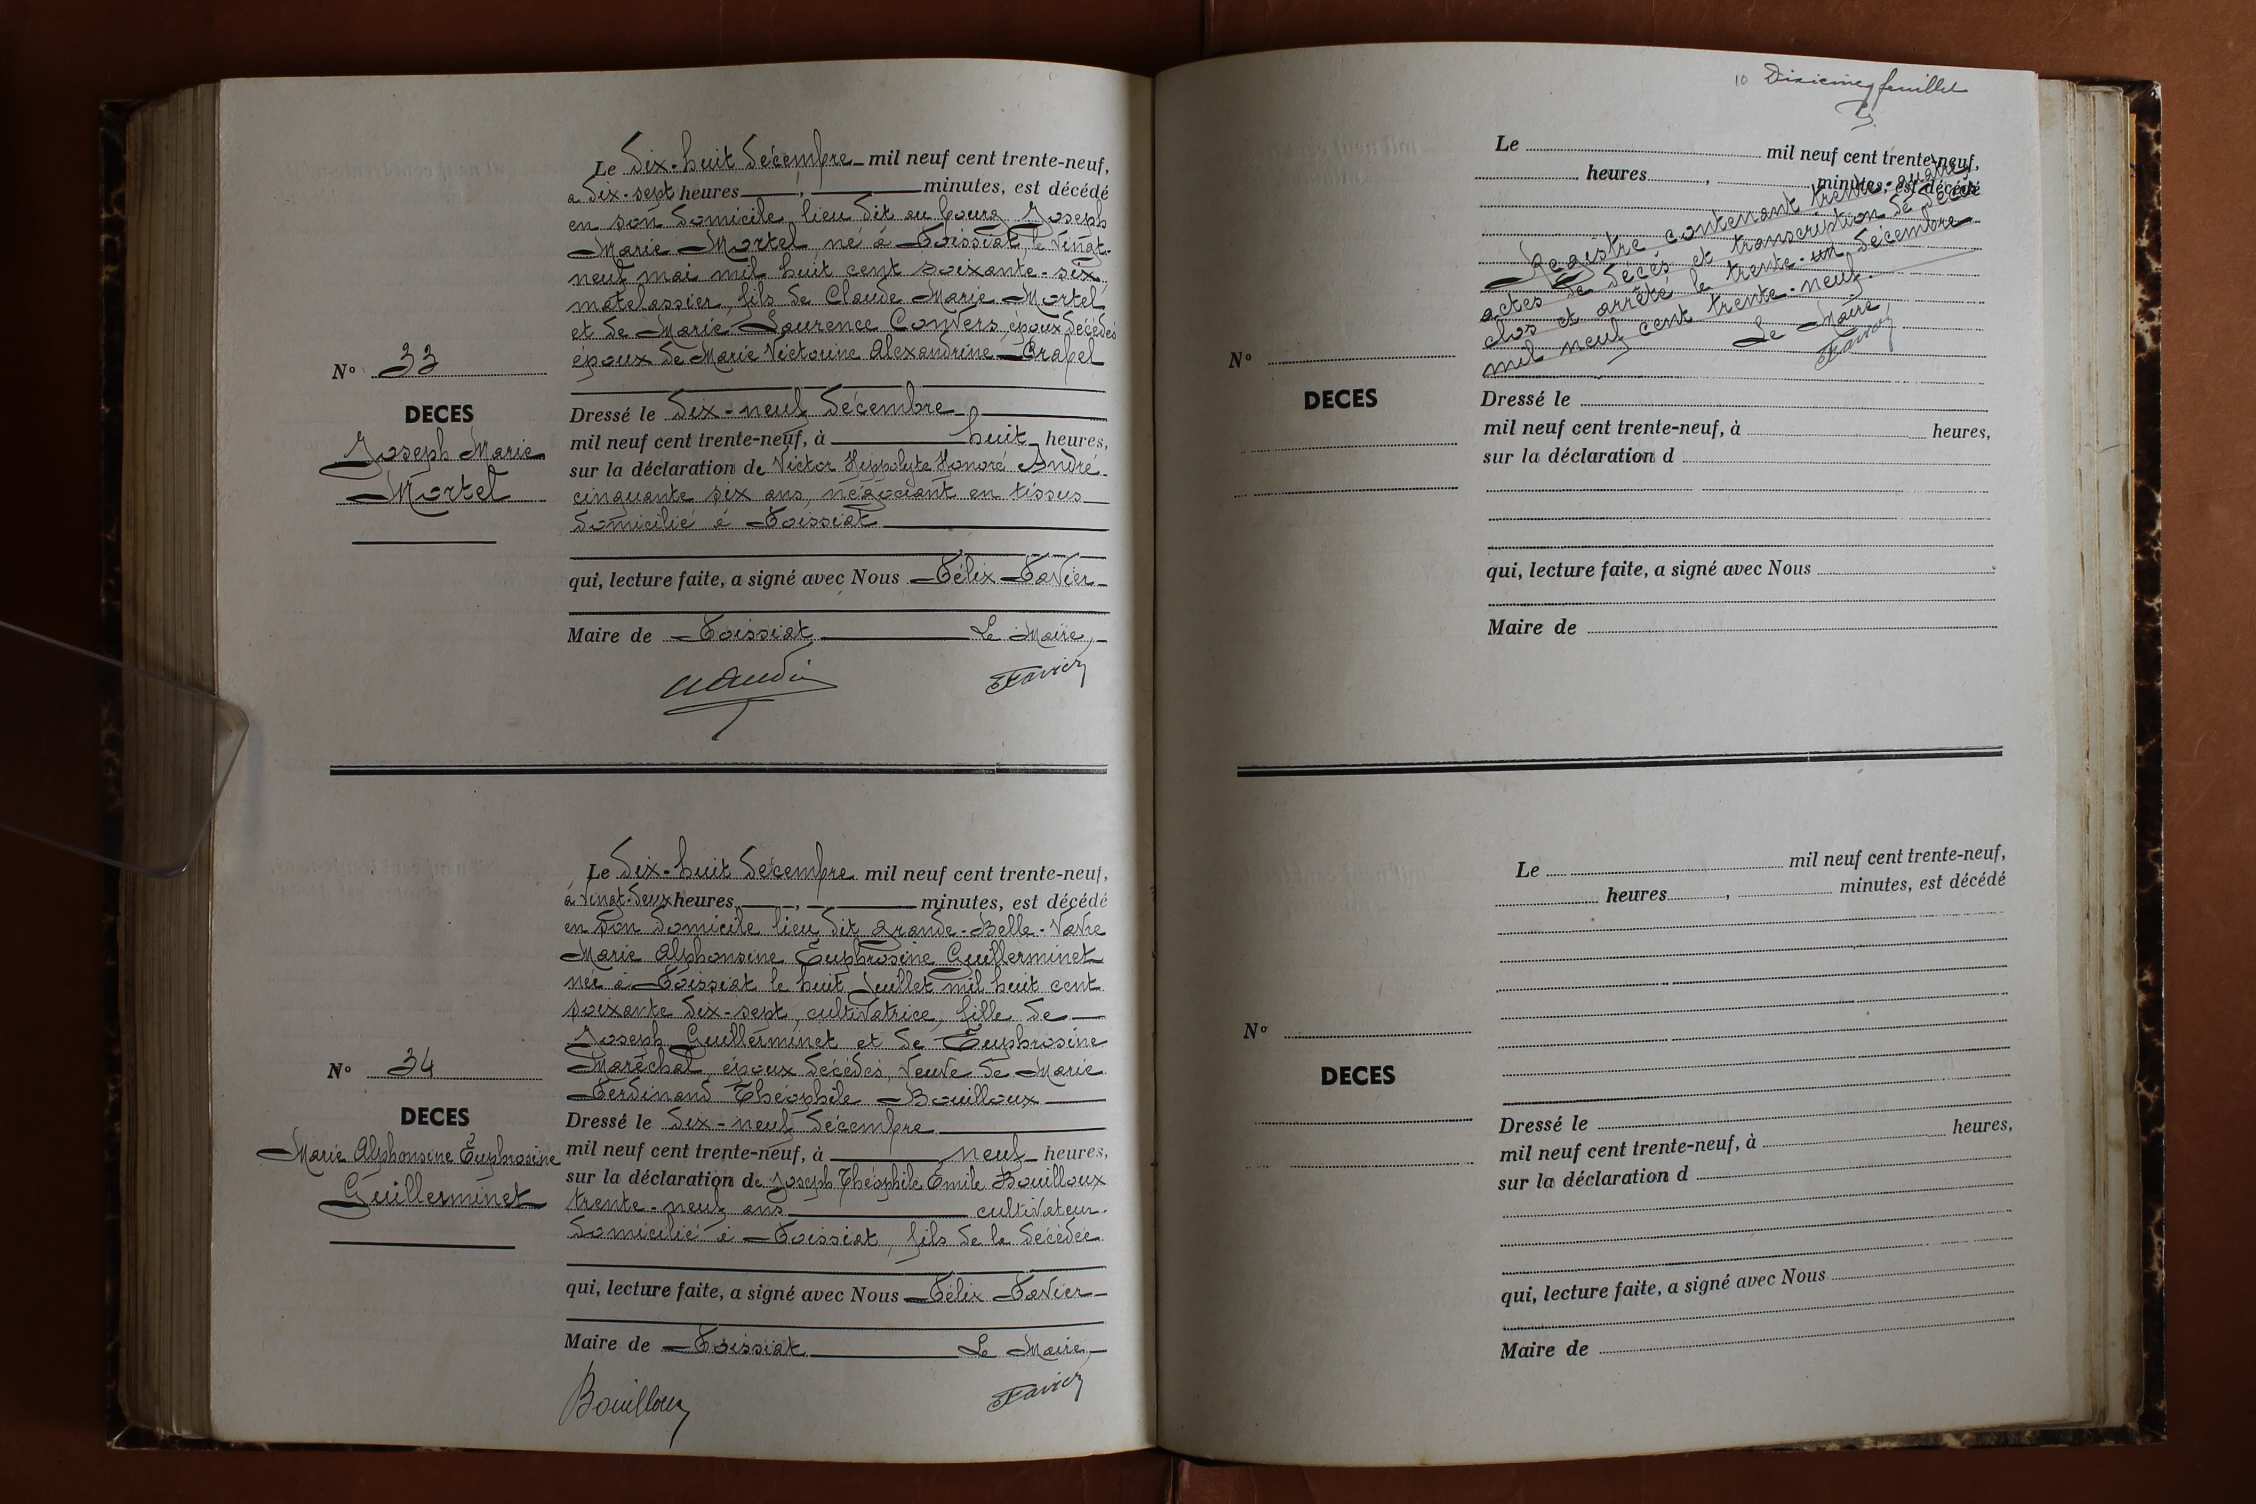 Le dix-huit décembre mil neuf cent trente-neuf,
à dix-sept heures , minutes, est décédé
en son domicile lieu dit au bourg Joseph
Marie Mortel né à Foissiat, le vingt-
neuf mai mil huit cent soixante-six,
matelassier, fils de Claude Marie Mortel
et de Marie Laurence Convers, époux décédés
époux de Marie Victorine Alexandrine
N° 33
DECES
Joseph Marie
Mortel
Dressé le dix-neuf décembre
mil neuf cent trente-neuf, à huit heures,
sur la déclaration de Victor Hippolyte Honoré André
cinquante six ans, négociant en tissus
domicilié à Foissiat
qui, lecture faite, a signé avec Nous Félix Favier
Maire de Foissiat Le Maire,
Favier
Le dix-huit décembre mil neuf cent trente-neuf,
à vingt-deux heures , minutes, est décédé
en son domicile lieu dit Grande-Belle-Vavre
Marie Alphonsine Euphrosine Guillerminet
née à Foissiat le huit Juillet mil huit cent
soixante dix-sept, cultivatrice, fille de
Joseph Guillerminet et de Euphrosine
Maréchal, époux décédés, veuve de Marie
Ferdinand Théophile Bouilloux
N° 34
DECES
Marie Alphonsine Euphrosine
Guillerminet
Dressé le dix-neuf décembre
mil neuf cent trente-neuf, à neuf heures,
sur la déclaration de Joseph Théophile Emile Bouilloux
trente-neuf ans cultivateur
domicilié à Foissiat, fils de la décédée
qui, lecture faite, a signé avec Nous Félix Favier
Maire de Foissiat Le Maire,
Bouilloux Favier
10 Dixième feuillet
Le mil neuf cent trente-neuf,
heures , minutes, est décédé
Registre contenant trente-quatre
actes de décès et transcription de décès
clos et arrêté le trente-un décembre
mil neuf cent trente-neuf.
Le Maire
Favier
N°
DECES
Dressé le
mil neuf cent trente-neuf, à heures,
sur la déclaration d
qui, lecture faite, a signé avec Nous
Maire de
Le mil neuf cent trente-neuf,
heures , minutes, est décédé
N°
DECES
Dressé le
mil neuf cent trente-neuf, à heures,
sur la déclaration d
qui, lecture faite, a signé avec Nous
Maire de